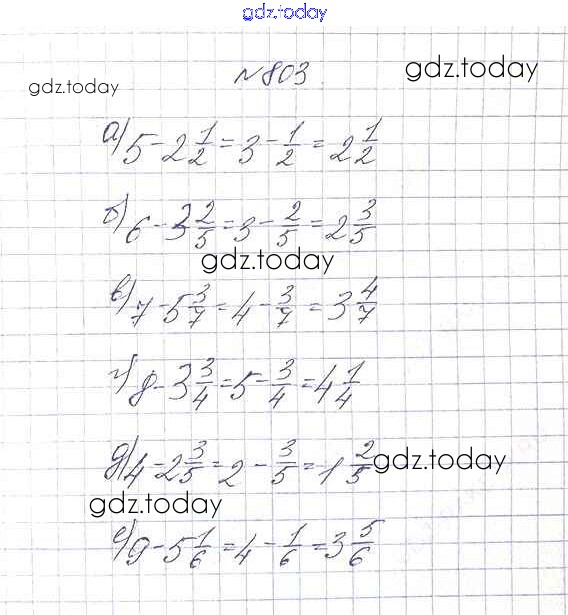 gdz.today
№803
gdz.today
gdz.today
а) 5 - 2 1/2 = 3 - 1/2 = 2 1/2
б) 6 - 3 2/5 = 3 - 2/5 = 2 3/5
gdz.today
в) 7 - 5 3/7 = 4 - 3/7 = 3 4/7
г) 8 - 3 3/4 = 5 - 3/4 = 4 1/4
д) 4 - 2 3/5 = 2 - 3/5 = 1 2/5
gdz.today
gdz.today
е) 9 - 5 1/6 = 4 - 1/6 = 3 5/6